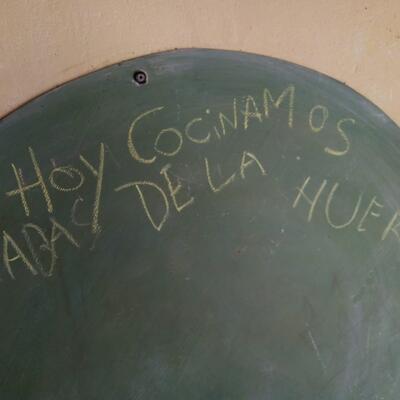 HOY COCINAMOS
ABAS DE LA HUER